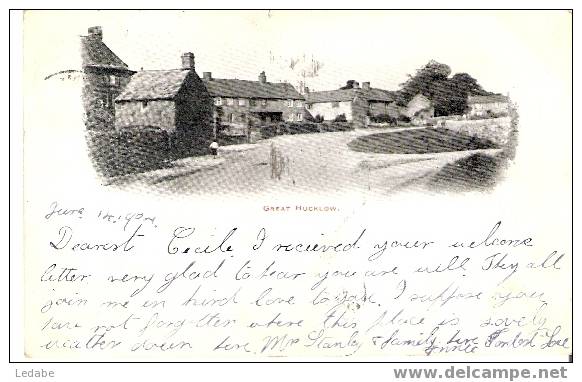 GREAT HUCKLOW.
June 14. 1904
Dearest Cecile I recieved your welcome
letter very glad to hear you are well. They all
join me in kind love to you. I suppose you
have not forgotten where this place is lovely
weather down here. Mrs Stanley & family here
Annie Fondest Love
Ledabe
www.delcampe.net